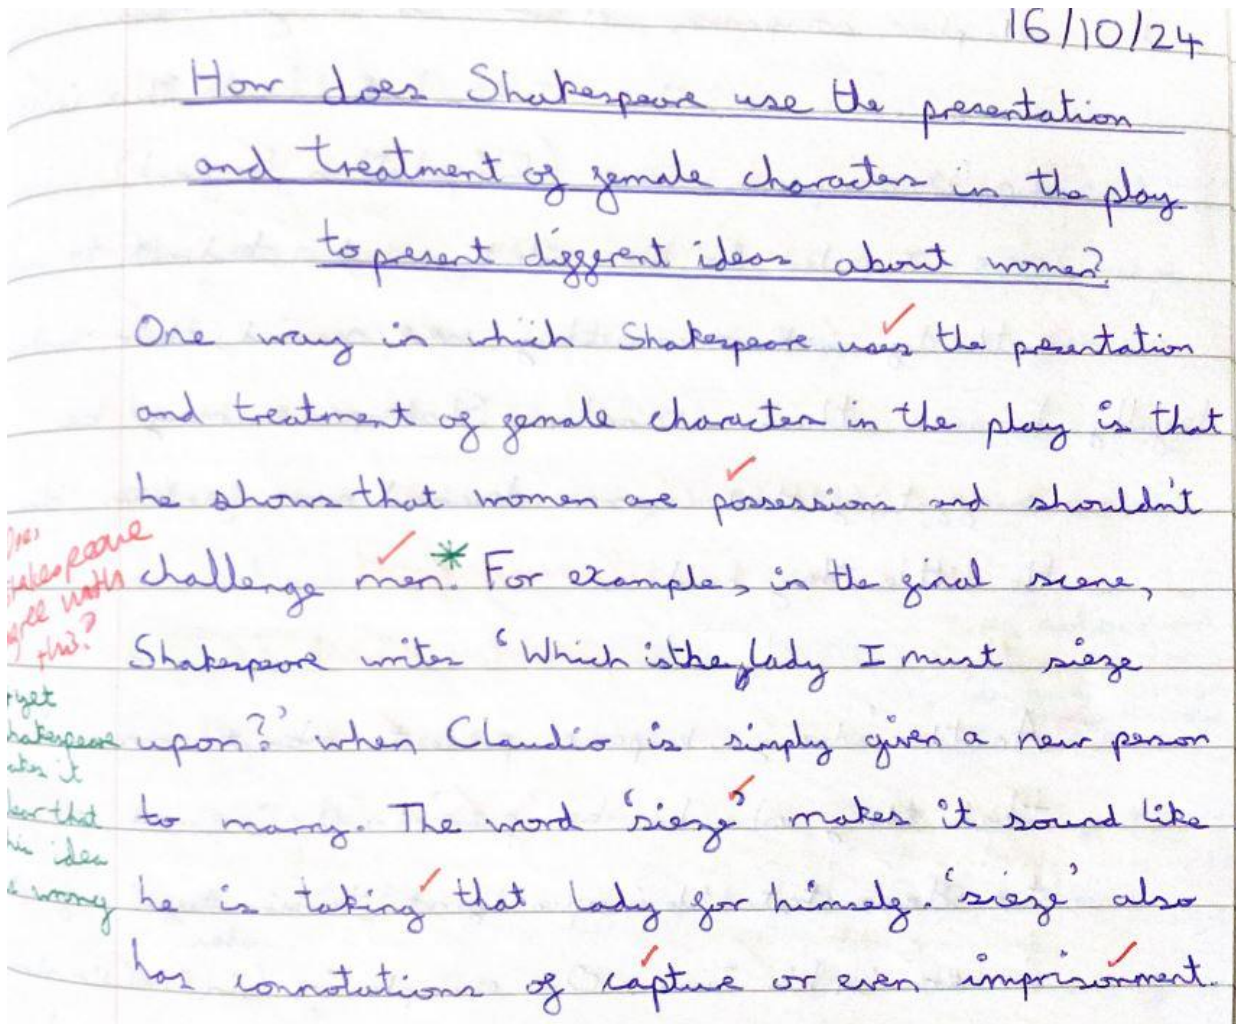 16/10/24
How does Shakespeare use the presentation
and treatment of female characters in the play
to present different ideas about women?
One way in which Shakespeare uses the presentation
and treatment of female characters in the play is that
he shows that women are possessions and shouldn't
challenge men.* For example, in the final scene,
Shakespeare writes 'Which is the lady I must sieze
upon?' when Claudio is simply given a new person
to marry. The word 'sieze' makes it sound like
he is taking that lady for himself. 'sieze' also
has connotations of capture or even imprisonment.
this?
yet
hakespeare
it
that
idea
wrong